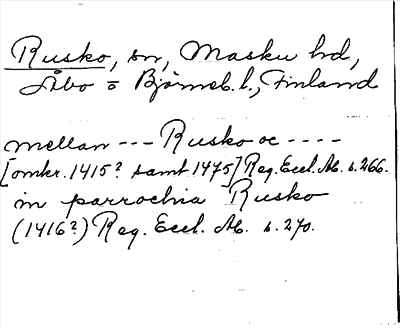 Rusko, sn, Masku hd,
Åbo o Björneb. l., Finland
mellan --- Rusko oc ----
[omkr. 1415? samt 1475] Reg. Eccl. Ab. s. 266.
in parrochia Rusko
(1416?) Reg. Eccl. Ab. s. 270.